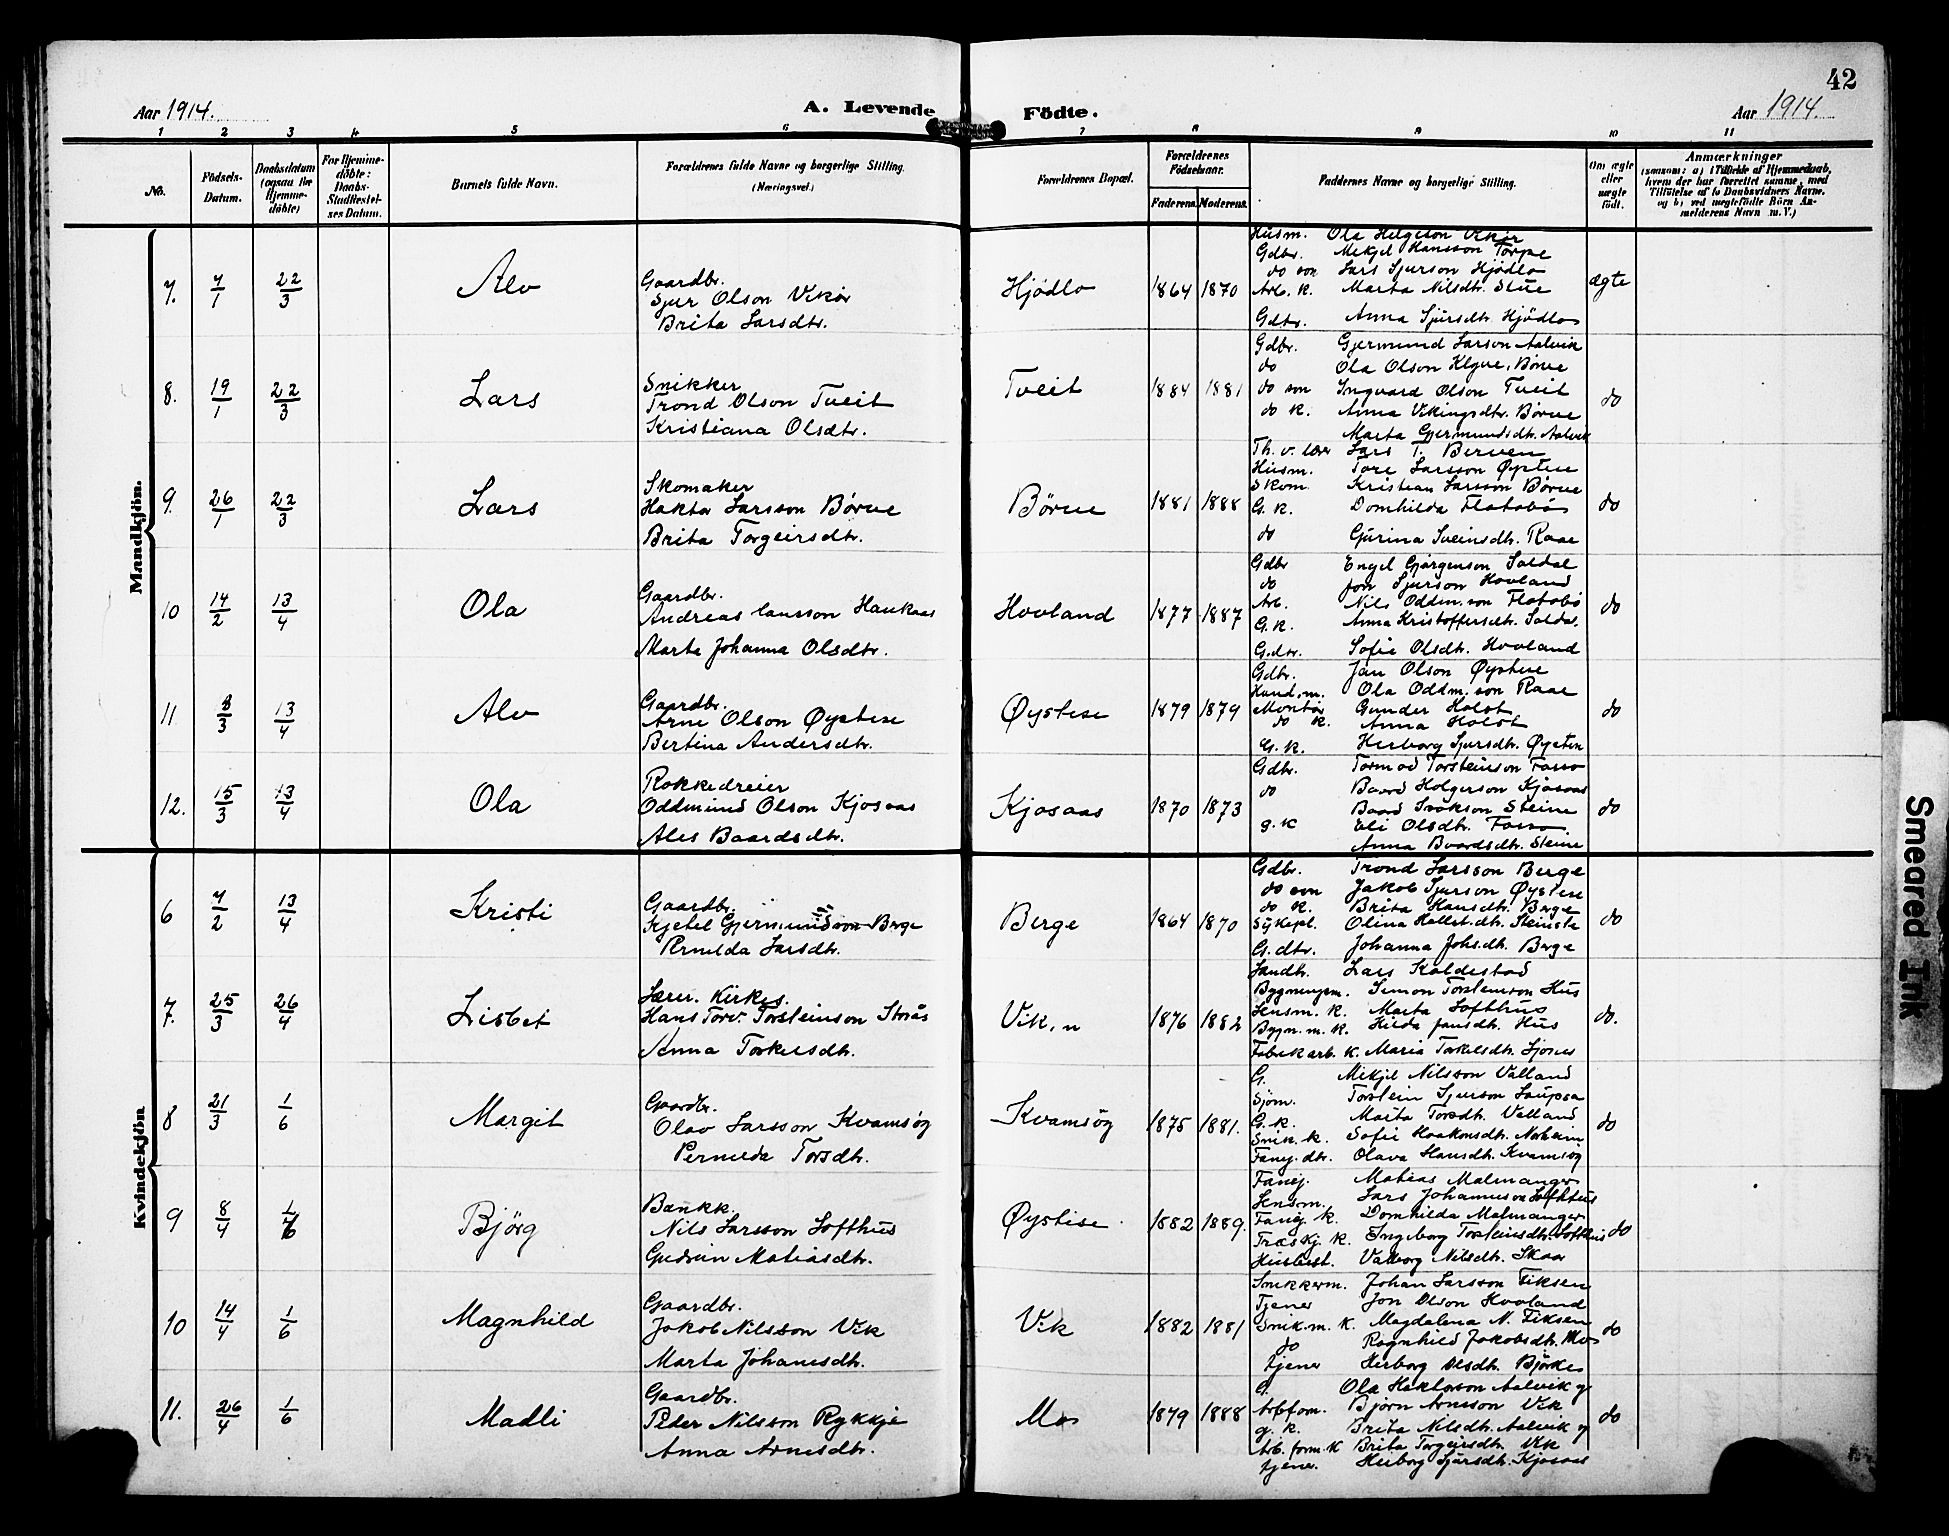 42
Aar 1914.
A. Levende Födte.
Aar 1914.
1 2 3 4 5 6 7 8 9 10 11
No.
Födsels-Datum.
Daabsdatum (ogsaa for Hjemme-döbte)
For Hjemme-döbte: Daabs-Stadfæstel-ses Datum.
Barnets fulde Navn.
Forældrenes fulde Navne og borgerlige Stilling. (Næringsvei.)
Forældrenes Bopæl.
Forældrenes Födselsaar.
Faderens. Moderens.
Faddernes Navne og borgerlige Stilling.
Om ægte eller uægte födt.
Anmærkninger
(saasom: a) i Tilfælde af Hjemmedaab, hvem der har forrettet samme, med Tilföielse af to Daabsvidners Navne, og b) ved uægtefödte Börn An-melderens Navn m. V.)
Mandkjön.
7. 7/1 22/3 Alv
Gaardbr.
Sjur Olson Vikør
Brita Larsdtr.
Hjødlo 1864 1870
Husm. Ola Helgeson Vikør
Gdbr. Mikjel Hansson Torpe
do son Lars Sjurson Hjødlo
Arb. k. Marta Nilsdtr. Stue
Gdtr. Anna Sjursdtr. Hjødlo
ægte
8. 19/1 22/3 Lars
Snikker
Trond Olson Tveit
Kristiana Olsdtr.
Tveit 1884 1881
Gdbr. Gjermund Larson Aalvik
do Ola Olson Klyve, Børve
do son Ingvard Olson Tveit
do k. Anna Vikingsdtr. Børve
Marta Gjermundsdtr. Aalvik
do
9. 26/1 22/3 Lars
Skomaker
Haktor Larsson Børve
Brita Torgeirsdtr.
Børve 1881 1888
Lars T. Berven
Husm. Tore Larsson Øystese
Skom. Kristian Larsson Børve
G. k. Domhilda Flatabø
do Gurina Sveinsdtr. Raae
do
10 14/2 13/4 Ola
Gaardbr.
Andreas Larsson Haukaas
Marta Johanna Olsdtr.
Hovland 1877 1887
Gdbr Engel Gjørgenson Soldal
do Jon Sjurson Hovland
Arb. Nils Oddm.son Flatabø
G. k. Anna Kristoffersdtr. Soldal
G.dtr. Sofie Olsdtr. Hovland
do
11 8/3 13/4 Alv
Gaardbr.
Arne Olson Øystese
Bertina Andersdtr.
Øystese 1879 1879
Gdbr. Jan Olson Øystese
Hand.m. Ola Oddm.son Raae
Montør Gunder Holst
do k. Anna Holst
G. k. Herborg Sjursdtr. Øystese
do
12. 15/3 13/4 Ola
Rokkedreier
Oddmund Olson Kjosaas
Ales Baardsdtr.
Kjosaas 1870 1873
Gdbr. Tormod Torsteinson Fosso
do Baard Holgerson Kjosaas
Baard Ivarson Steine
g. k Eli Olsdtr. Fosso
Anna Baardsdtr. Steine
do
Kvindekjön
6 7/2 13/4 Kristi
Gaardbr.
Kjetel Gjermundson Berge
Pernilda Larsdtr.
Berge 1864 1870
Gdbr. Trond Larsson Berge
do son Jakob Sjurson Øystese
do k. Brita Hansdtr. Berge
Sykepl. Olina Steinstø
G. dtr. Johanna Johsdtr. Berge
do
7. 25/3 26/4 Lisbet
Lærer. Kirkes.
Hans Torv. Torsteinson Straas
Anna Torkelsdtr.
Vik.n 1876 1882
Landh. Lars Koldestad
Bygningsm. Simon Torsteinson Hus
Lensm. k. Marta Lofthus
Bygn.m.k. Hilda Jansdtr. Hus
Fabrikarb. k. Maria Torkelsdtr. Ljones
do.
8 21/3 1/6 Margit
Gaardbr.
Olav Larsson Kvamsøg
Pernilda Torsdtr.
Kvamsøg 1875 1881.
G. Mikjel Nilsson Valland
Sjøm. Torstein Sjurson Laupsa
G. k. Marta Torsdtr. Valland
Snik. k. Sofie Haakonsdtr. Norheim
Fanej. dtr. Olava Hansdtr. Kvamsøg
do
9 8/4 1/6 Bjørg
Bankk.
Nils Larsson Lofthus
Gudrun Matiasdtr.
Øystese. 1882 1889.
Fanej. Matias Malmanger
Lensm. Lars Johanneson Lofthus
Fanej. k. Domhilda Malmanger
Træskj. k. Ingeborg Torsteinsdtr. Lofthus
Husbest. Valborg Nilsdtr. Skaar
do
10 14/4 1/6 Magnhild
Gaardbr.
Jakob Nilsson Vik
Marta Johanesdtr.
Vik 1882 1881
Snikkerm. Johan Larsson Fiksen
Tjener Jon Olson Hovland
Snik.m. k. Magdalena N. Fiksen
do Ragnhild Jakobsdtr. Mo
tjener Herborg Olsdtr. Bjørke
do
11. 26/4 1/6 Madli
Gaardbr.
Peder Nilsson Rykkje
Anna Arnesdtr.
Mo 1879 1888
G. Ola Haktorson Aalvik y
Arbform. Bjørn Arneson Vik
g. k. Brita Nilsdtr. Aalvik y
Arb. form. k Brita Torgeirsdtr. Vik
tjener. Herborg Sjursdtr. Kjosaas
do
Smeared Ink